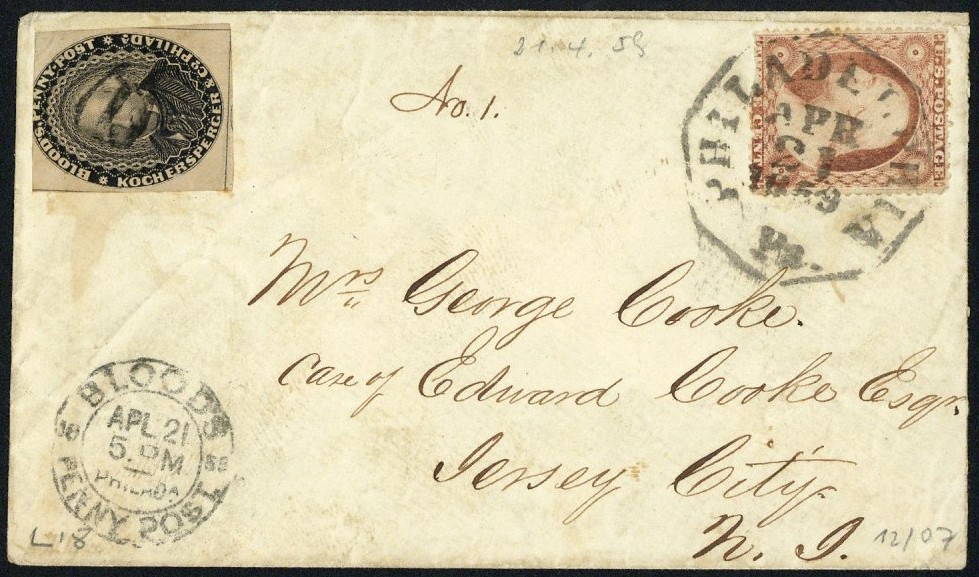 BLOOD'S PENNY POST ✱ KOCHERSPERGER & CO. PHILADA. ✱
21. 4. 59
No. 1.
U.S. POSTAGE
CENTS
PHILADELPHIA
APR
21
1859
Pa.
Mrs. George Cooke.
Care of Edward Cooke Esqr.
Jersey City.
N. J.
BLOOD'S
APL 21
5. PM
PHILADA
PENNY POST
L18
12/07